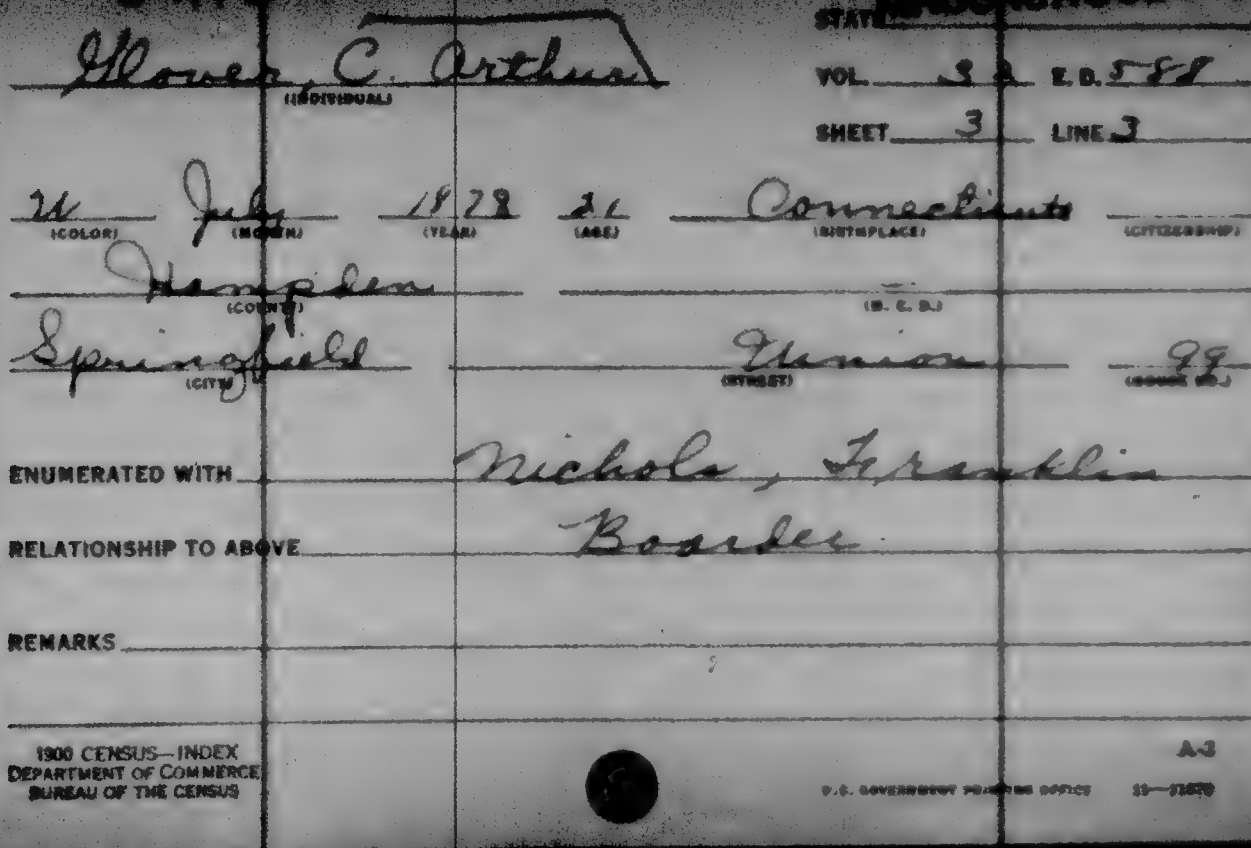 STATE
Glover, C. Arthur
(INDIVIDUAL)
VOL. E. D. 588
SHEET 3 LINE 3
W July 1878 21 Connecticut
(COLOR) (MONTH) (YEAR) (AGE) (BIRTHPLACE) (CITIZENSHIP)
Hampden
(COUNTY) (M. C. D.)
Springfield Union 99
(CITY) (STREET) (HOUSE NO.)
ENUMERATED WITH Nichols, Franklin
RELATIONSHIP TO ABOVE Boarder
REMARKS
1900 CENSUS—INDEX
DEPARTMENT OF COMMERCE
BUREAU OF THE CENSUS
A-3
U.S. GOVERNMENT PRINTING OFFICE